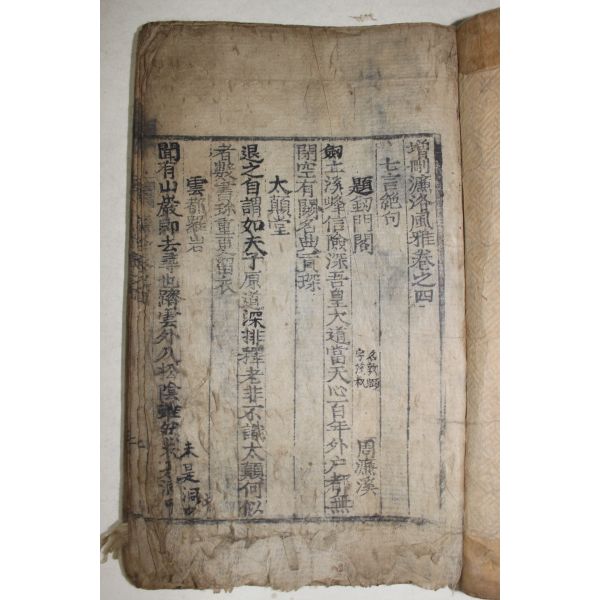 增刪濂洛風雅卷之四
七言絶句
題劒門閣 名敦頤 周濂溪
劒立溪峰信險深吾皇大道當天心百年外戶都無
閉空有關名貢琛
太顚堂
退之自謂如夫子原道深排釋老非不識太顚何似
者數書珍重更畱衣
雲都羅岩
聞有山巖即去尋也躋雲外入松陰雖然未是洞中
未是洞中